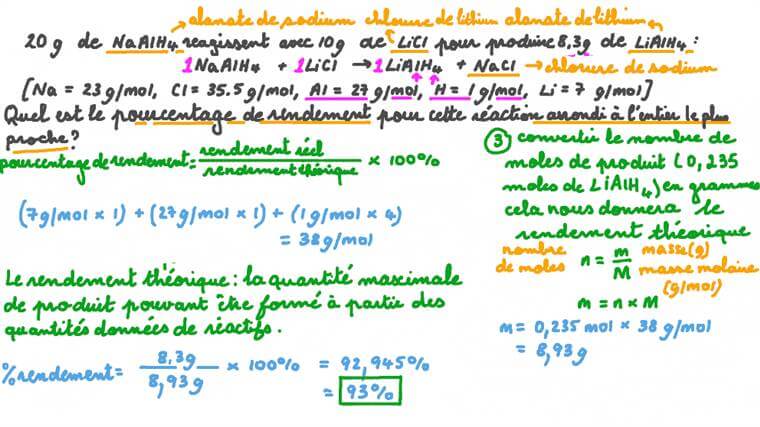 alanate de sodium chlorure de lithium alanate de lithium
20 g de NaAlH₄ reagissent avec 10g de LiCl pour produire 8,3g de LiAlH₄ :
1NaAlH₄ + 1LiCl → 1LiAlH₄ + NaCl → chlorure de sodium
[Na = 23 g/mol, Cl = 35.5 g/mol, Al = 27 g/mol, H = 1 g/mol, Li = 7 g/mol]
Quel est le pourcentage de rendement pour cette réaction arrondi à l'entier le plus
proche ?
pourcentage de rendement = rendement réel / rendement théorique × 100%
(7g/mol × 1) + (27g/mol × 1) + (1g/mol × 4)
= 38g/mol
Le rendement théorique : la quantité maximale
de produit pouvant être formé à partir des
quantités données de réactifs.
% rendement = 8,3g / 8,93g × 100% = 92,945%
= 93%
③ convertir le nombre de
moles de produit (0,235
moles de LiAlH₄) en grammes
cela nous donnera le
rendement théorique
nombre de moles n = m/M masse(g) masse molaire (g/mol)
m = n × M
m = 0,235 mol × 38 g/mol
= 8,93g